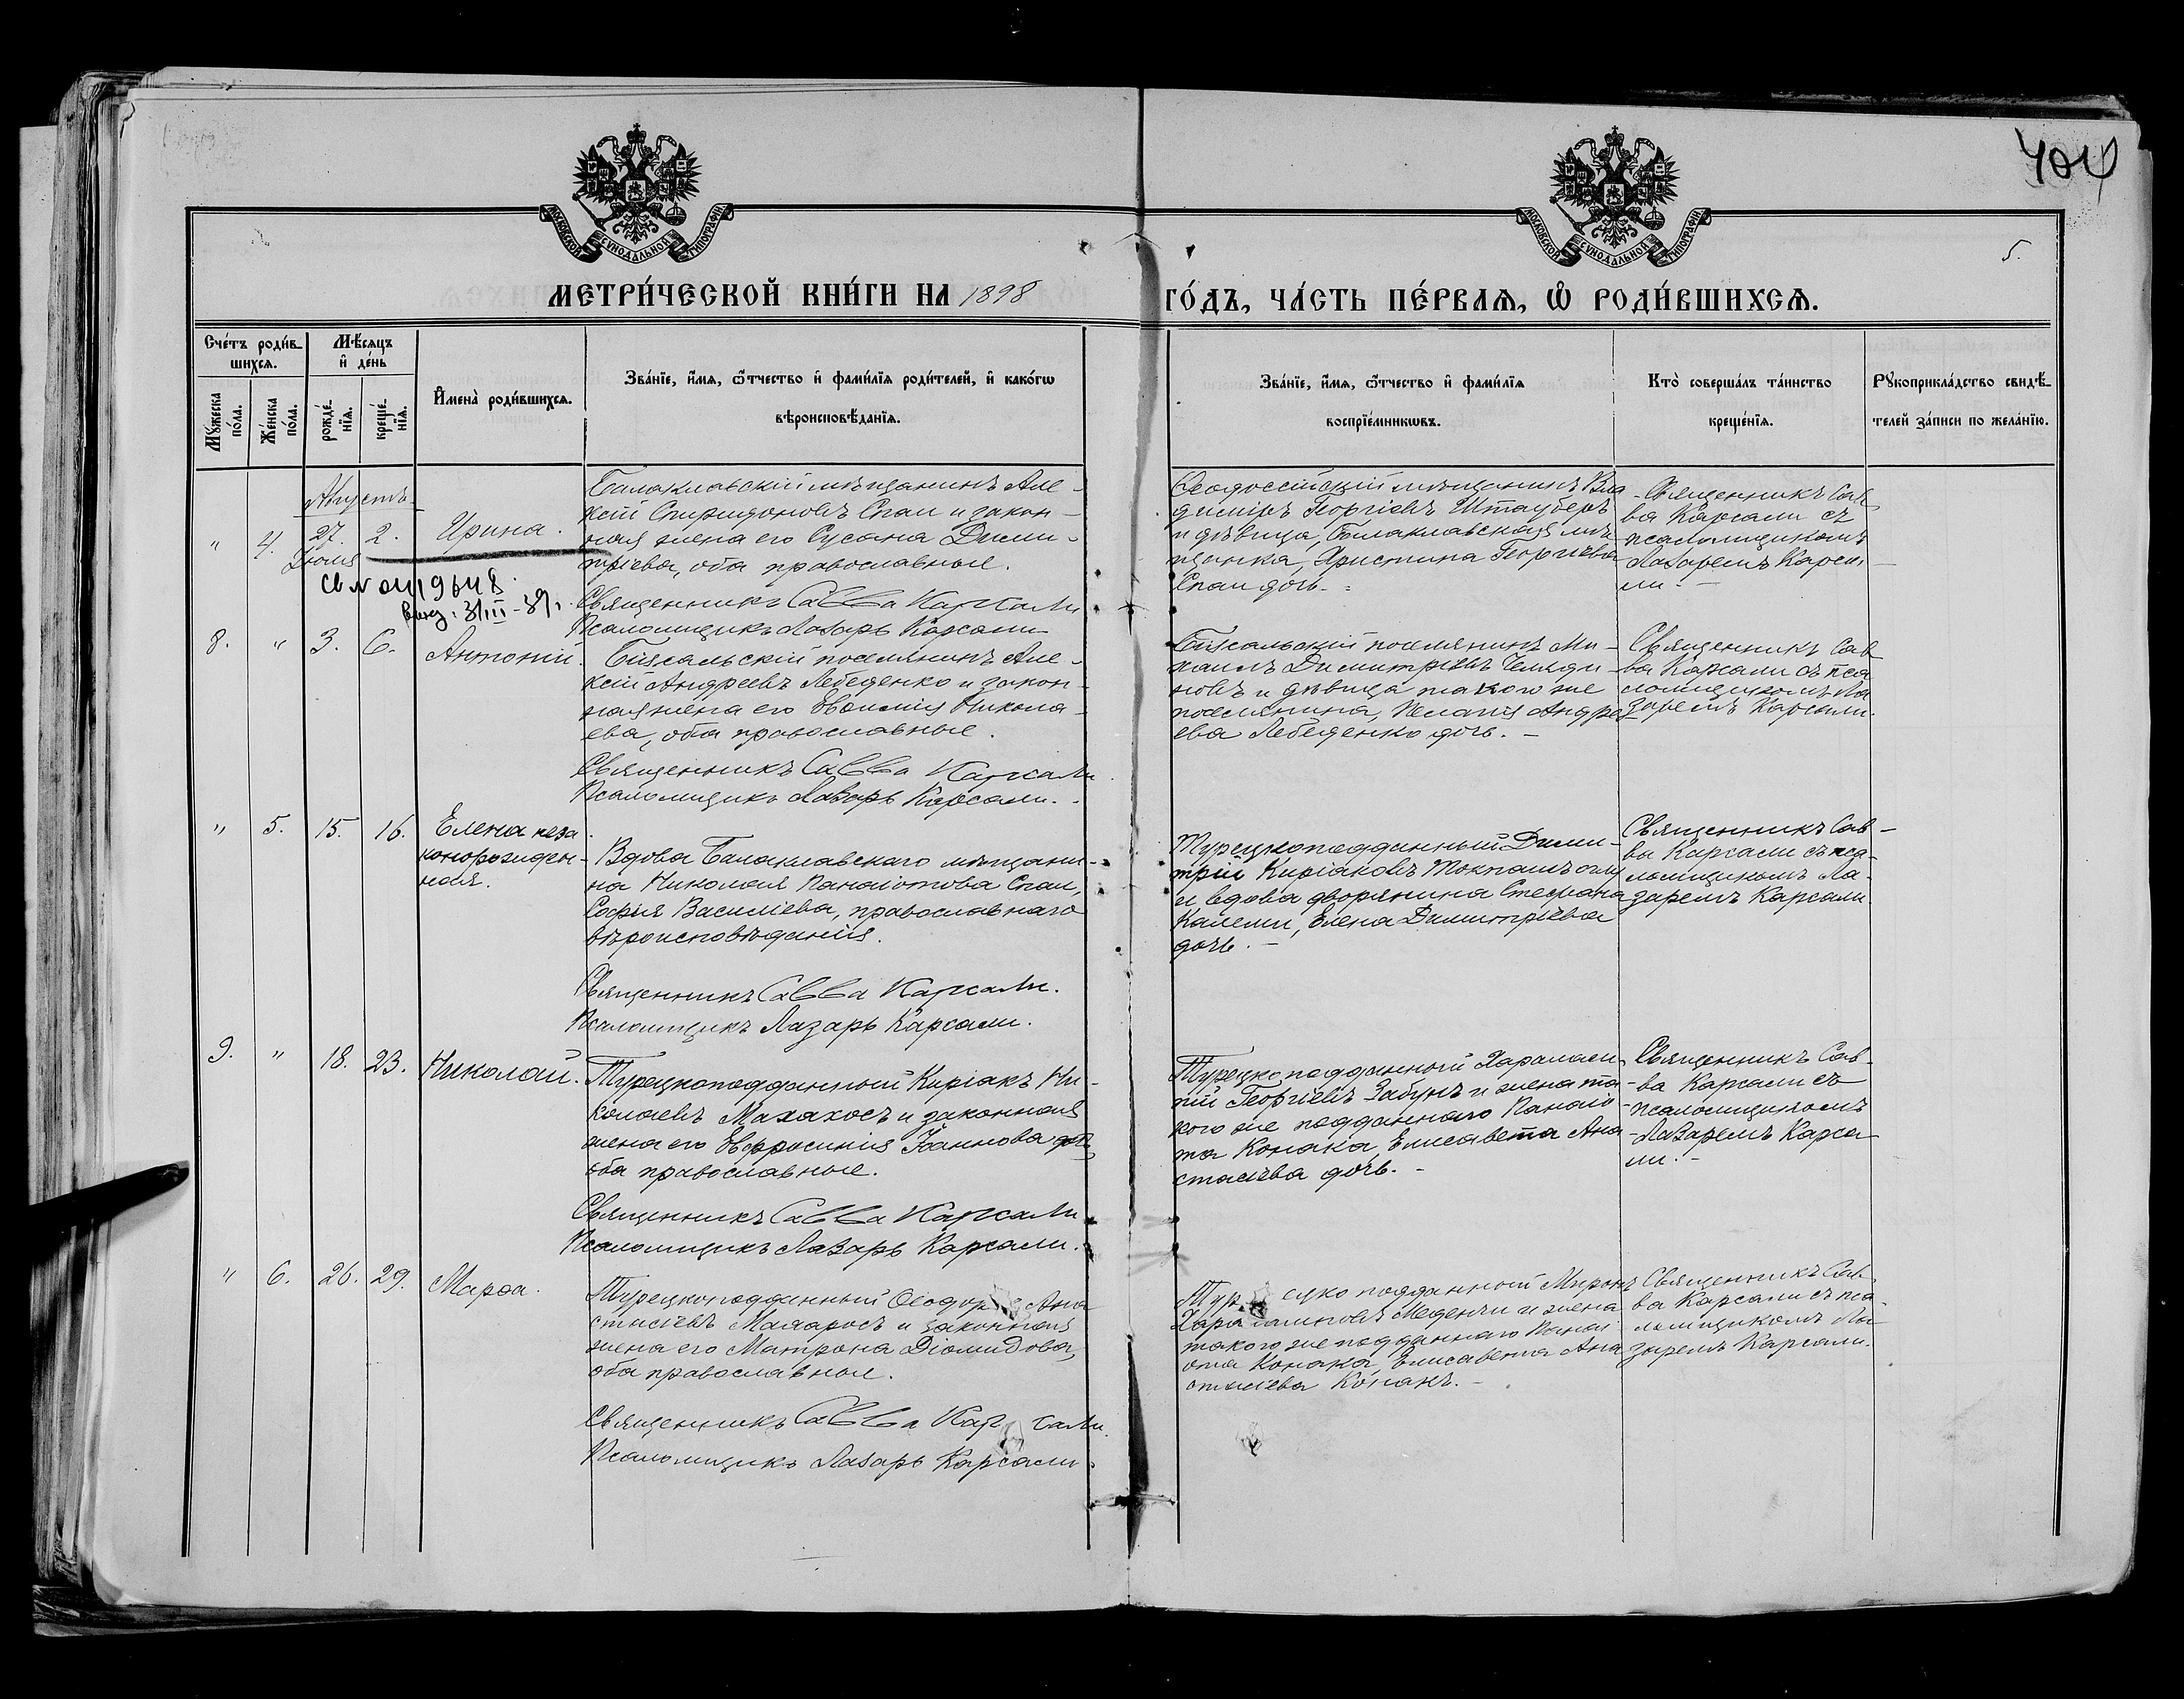 404
5.
МОСКОВСКОЙ СѴНОДАЛЬНОЙ ТИПОГРАФІИ
МОСКОВСКОЙ СѴНОДАЛЬНОЙ ТИПОГРАФІИ
МЕТРИ́ЧЕСКОЙ КНИ́ГИ НА 1898
ГО́ДЪ, ЧА́СТЬ ПЕ́РВАѦ, Ѡ҆ РОДИ́ВШИХСѦ.
Сче́тъ роди́в-
шихсѧ.
Мѣ́сѧцъ
и҆ де́нь
Мꙋ́жеска
по́ла.
Же́нска
по́ла.
рожде́-
нїѧ.
креще́-
нїѧ.
И҆мена̀ роди́вшихсѧ.
Зва́нїе, и҆́мѧ, ѻ҆́тчество и҆ фами́лїѧ роди́телей, и҆ како́гѡ
вѣроисповѣ́данїѧ.
Зва́нїе, и҆́мѧ, ѻ҆́тчество и҆ фами́лїѧ
воспрїе́мникѡвъ.
Кто̀ соверша́лъ та́инство
креще́нїѧ.
Рꙋкоприкла́дство свидѣ́-
телей за́писи по жела́нїю.
Августъ
" 4. 27. 2. Ирина.
Іюля
Балаклавскій мѣщанинъ Але-
ксій Спиридоновъ Спаи и закон-
ная жена его Сусана Дими-
тріева, оба православные.
Священникъ Савва Карсали
Псаломщикъ Лазарь Карсали
Ѳеодоссійскій мѣщанинъ Вла
диміръ Георгіевъ Штауберъ
и дѣвица, Балаклавская мѣ-
щанка, Христина Георгіева
Спаи дочь. -
Священникъ Сав
ва Карсали съ
псаломщикомъ
Лазаремъ Карса-
ли. -
8. " 3. 6. Антоній.
Біясальскій поселянинъ Але-
ксій Андреевъ Лебеденко и закон-
ная жена его Евѳимія Никола-
ева, оба православные.
Священникъ Савва Карсали
Псаломщикъ Лазарь Карсали.
Біясальскій поселянинъ Ми-
хаилъ Димитріевъ
и дѣвица такого же
поселянина, Пелагія Андре
ева Лебеденко дочь. -
Священникъ Сав
ва Карсали съ пса
ломщикомъ Ла
заремъ Карсали.
" 5. 15. 16. Елена неза
конорожден-
ная.
Вдова Балаклавскаго мѣщани-
на Николая Панаіотова Спаи,
Софія Василіева, православнаго
вѣроисповѣданія.
Священникъ Савва Карсали.
Псаломщикъ Лазарь Карсали.
Турецкоподданный Дими-
трій Киріаковъ
и вдова дворянина Стефана
Елена Димитріева
дочь. -
Священникъ Сав-
ва Карсали съ пса-
ломщикомъ Ла-
заремъ Карсали
9. " 18. 23. Николай.
Турецкоподданный Киріакъ Ни-
колаевъ Махахосъ и законная
жена его Евфросинія Іоаннова
оба православные.
Священникъ Савва Карсали
Псаломщикъ Лазарь Карсали.
Турецкоподданный Харалам-
пій Георгіевъ Забунъ и жена та
кого же подданнаго Панаіо
та Конака, Елисавета Ана
стасіева дочь. -
Священникъ Сав-
ва Карсали съ
псаломщикомъ
Лазаремъ Карса
ли. -
" 6. 26. 29. Марѳа.
Турецкоподданный Ѳеодоръ Ана
стасіевъ и законная
жена его Матрона Діомидова,
оба православные.
Священникъ Савва Карсали.
Псаломщикъ Лазарь Карсали.
Турецкоподданный Миронъ
Харалампіевъ и жена
такого же подданнаго Панаі
ота Конака, Елисавета Ана
стасіева Конакъ. -
Священникъ Сав
ва Карсали съ пса-
ломщикомъ Ла-
заремъ Карсали.